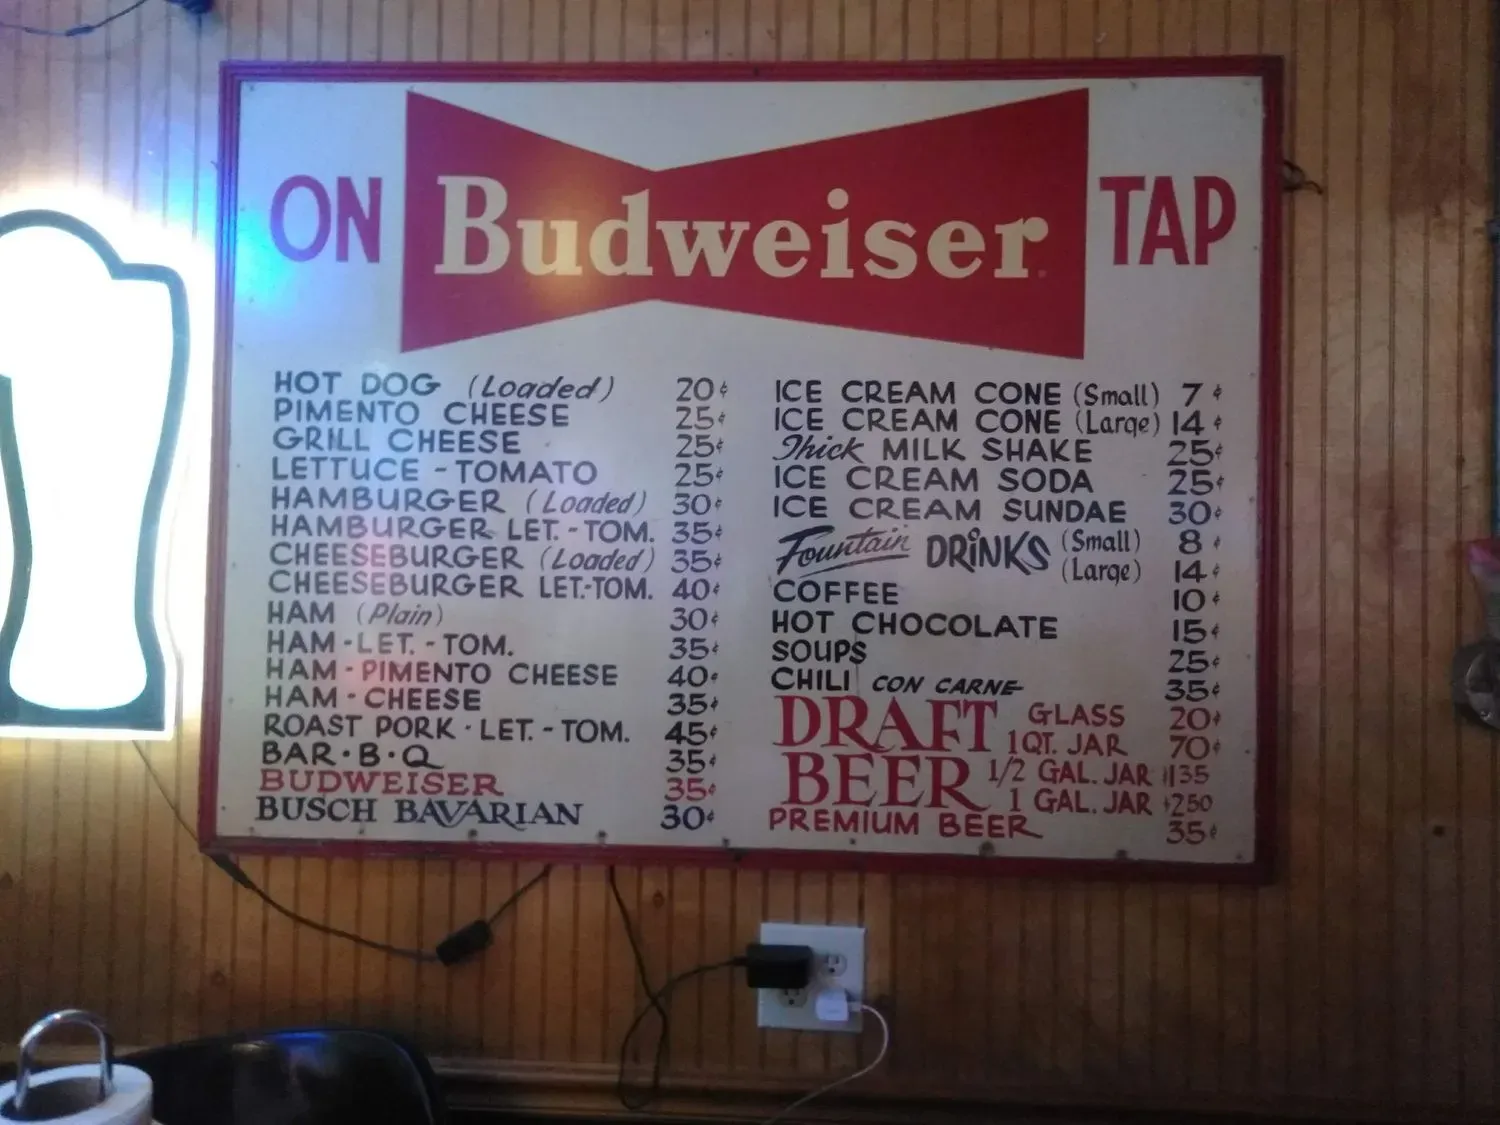 ON Budweiser TAP
HOT DOG (Loaded) 20¢
PIMENTO CHEESE 25¢
GRILL CHEESE 25¢
LETTUCE - TOMATO 25¢
HAMBURGER (Loaded) 30¢
HAMBURGER LET. - TOM. 35¢
CHEESEBURGER (Loaded) 35¢
CHEESEBURGER LET.-TOM. 40¢
HAM (Plain) 30¢
HAM - LET. - TOM. 35¢
HAM - PIMENTO CHEESE 40¢
HAM - CHEESE 35¢
ROAST PORK - LET. - TOM. 45¢
BAR • B • Q 35¢
BUDWEISER 35¢
BUSCH BAVARIAN 30¢
ICE CREAM CONE (Small) 7¢
ICE CREAM CONE (Large) 14¢
Thick MILK SHAKE 25¢
ICE CREAM SODA 25¢
ICE CREAM SUNDAE 30¢
Fountain DRINKS (Small) 8¢
(Large) 14¢
COFFEE 10¢
HOT CHOCOLATE 15¢
SOUPS 25¢
CHILI CON CARNE 35¢
DRAFT GLASS 20¢
1 QT. JAR 70¢
BEER 1/2 GAL. JAR $135
1 GAL. JAR $250
PREMIUM BEER 35¢